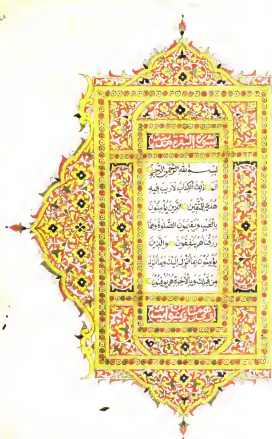 سورة البقرة مدنية
بسم الله الرحمن الرحيم
الم ذلك الكتاب لا ريب فيه
هدى للمتقين الذين يؤمنون
بالغيب ويقيمون الصلوة ومما
رزقناهم ينفقون والذين
يؤمنون بما أنزل إليك وما أنزل
من قبلك وبالآخرة هم يوقنون